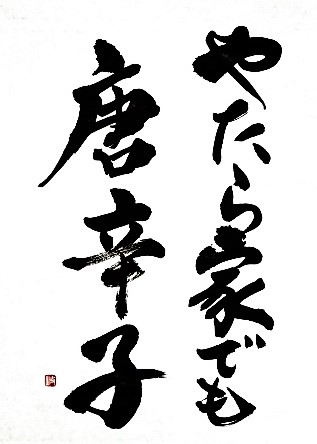 やたら家でも
唐辛子